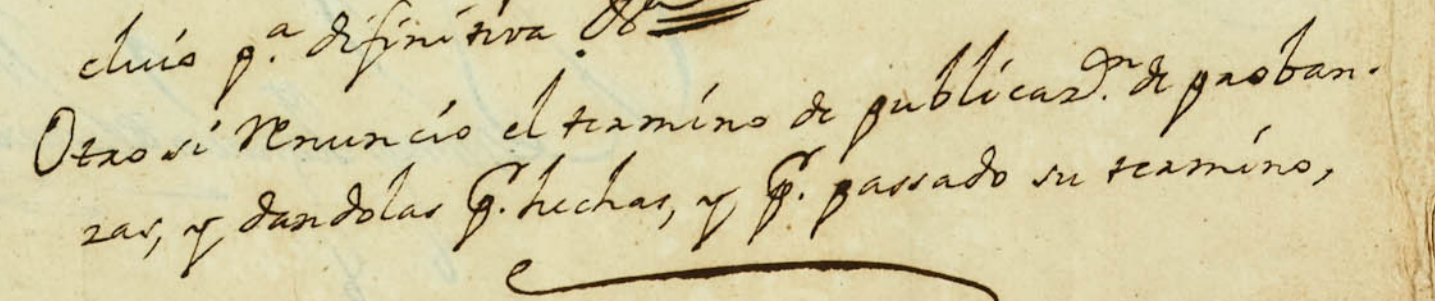 cluio p.ª difinitiva. Vª
Otro si Renuncio el termino de publicaz.ⁿ de proban-
zas, y dandolas p. hechas, y p. passado su termino,